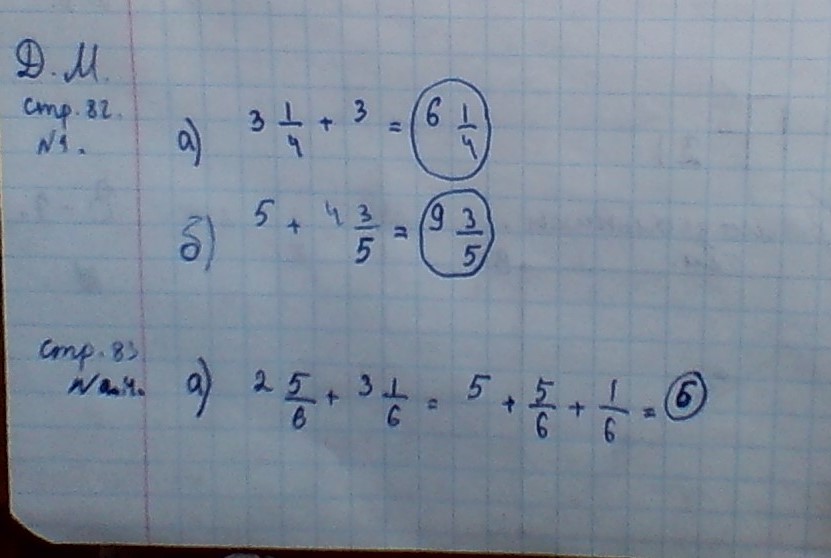 Д.М.
стр.82.
№1. а) 3 1/4 + 3 = 6 1/4
б) 5 + 4 3/5 = 9 3/5
стр.83
а) 2 5/6 + 3 1/6 = 5 + 5/6 + 1/6 = 6